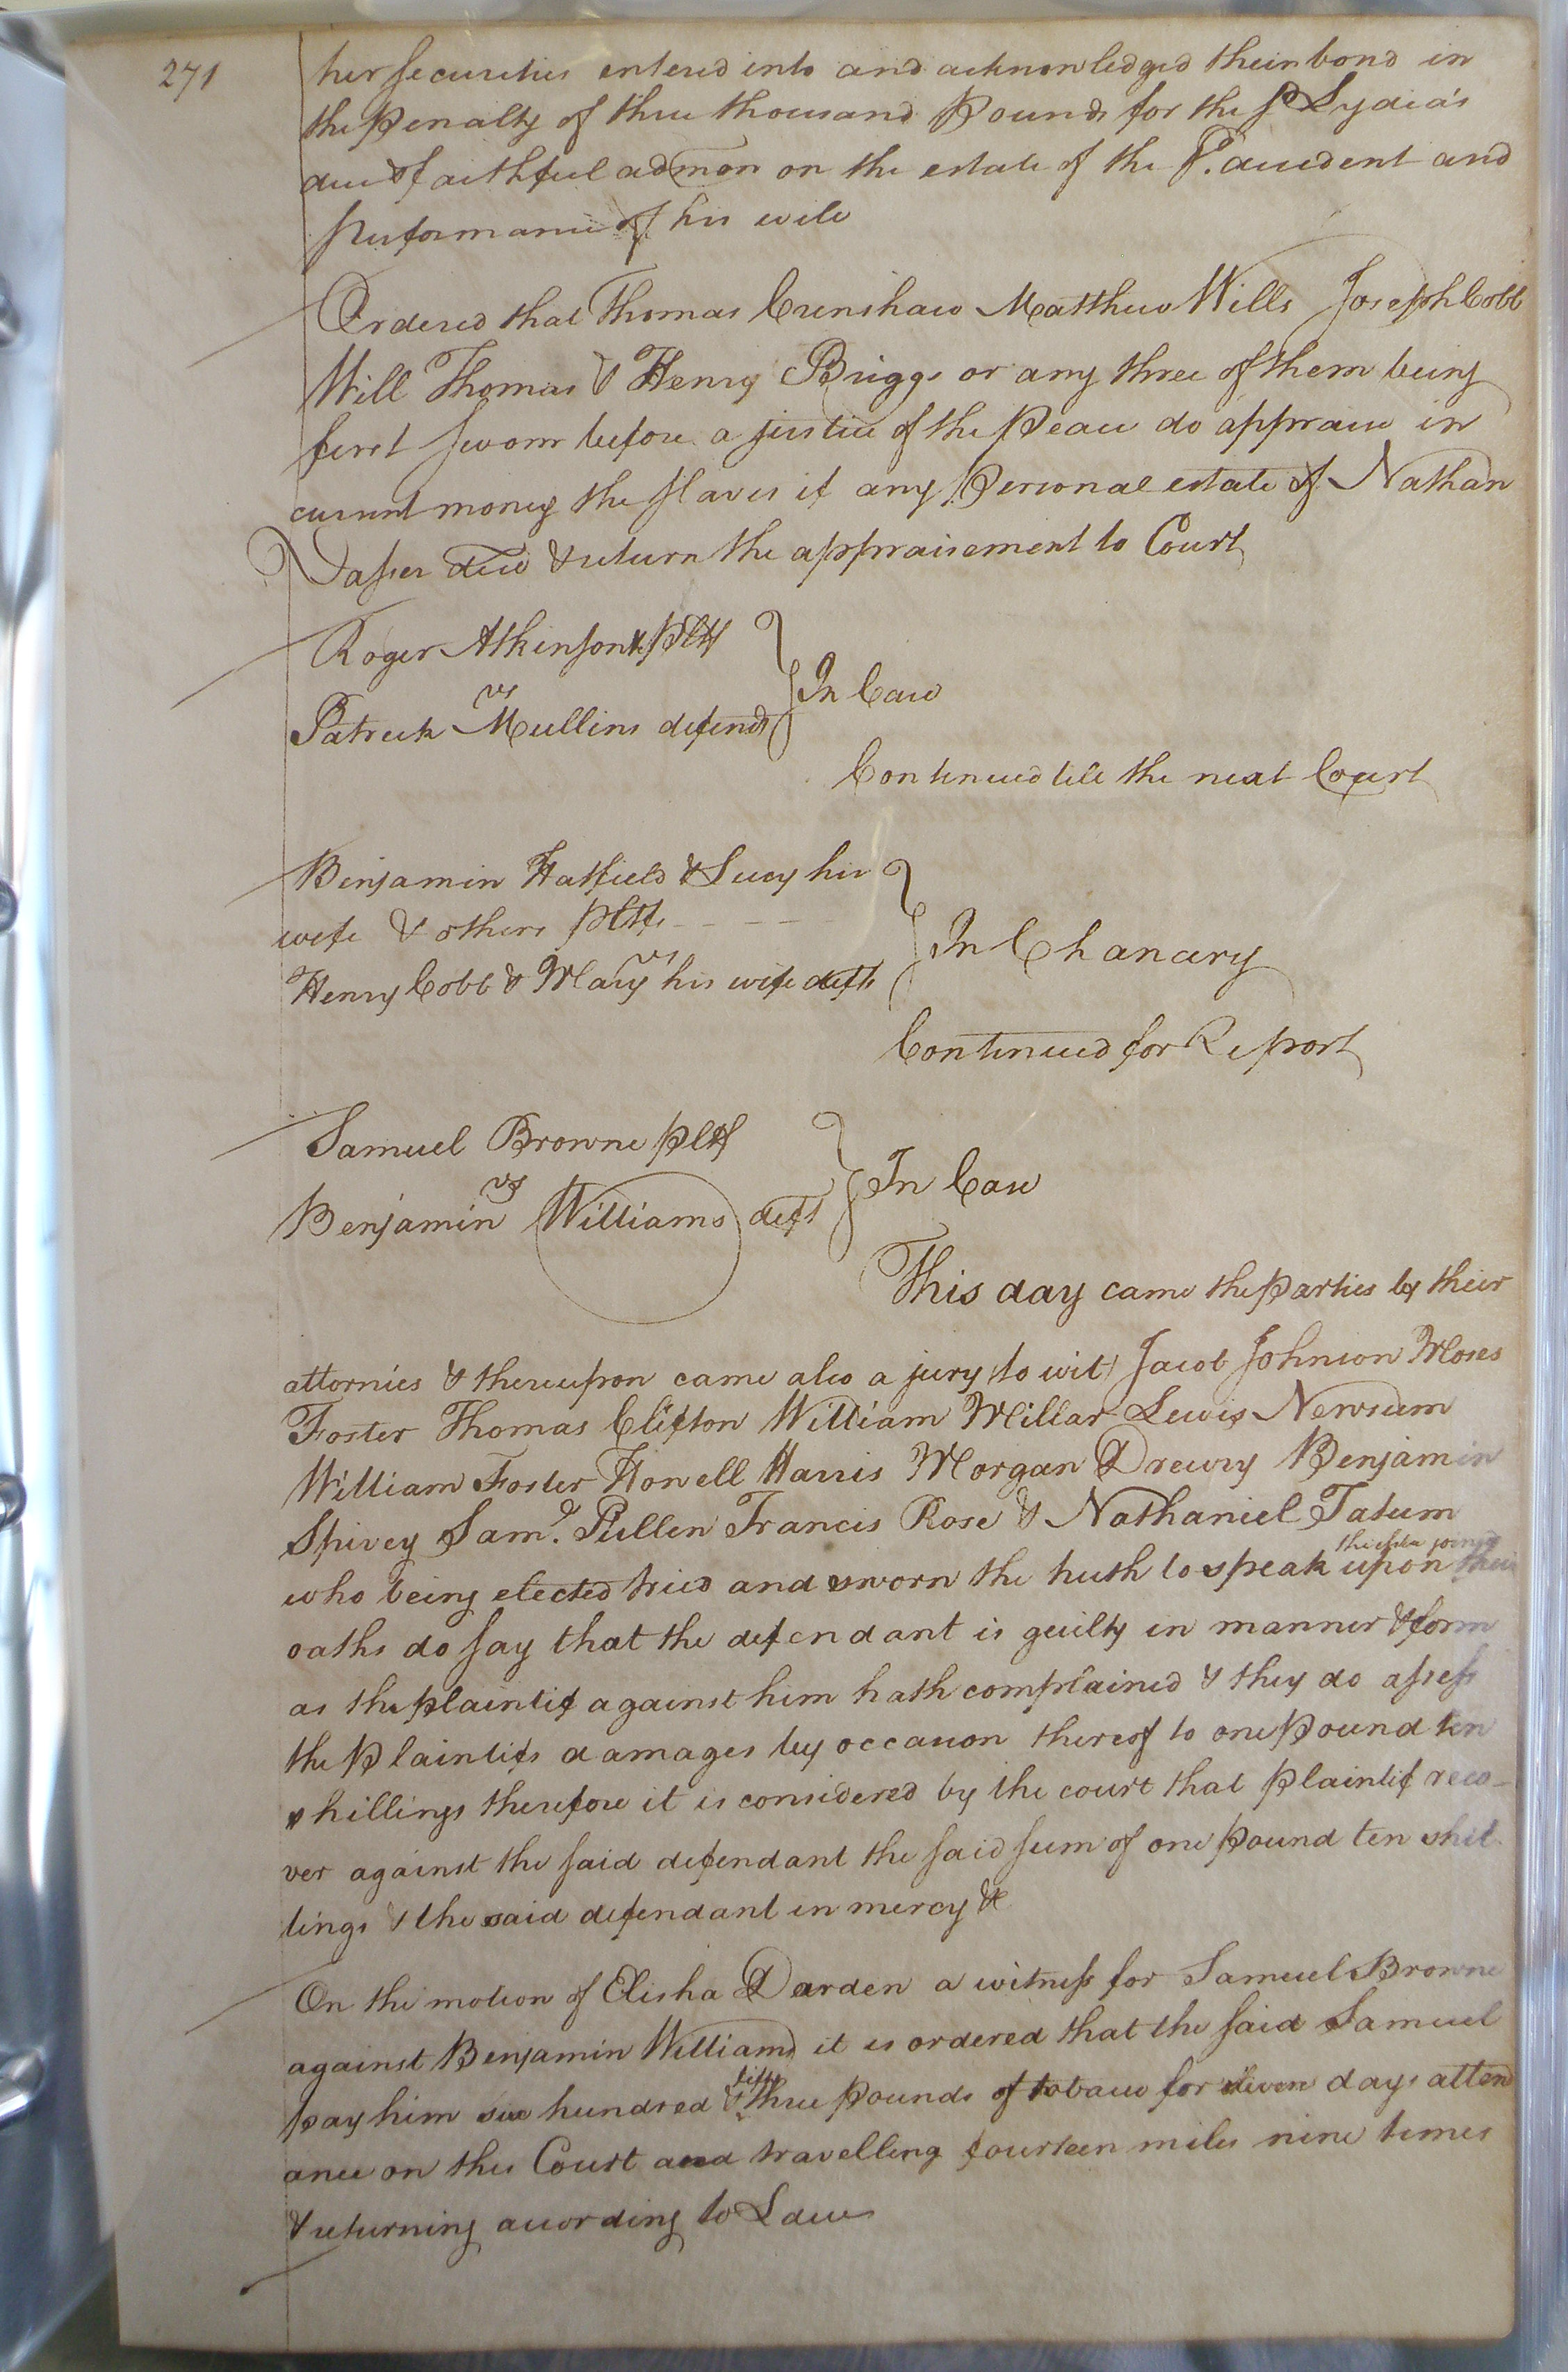 271
her securities entered into and acknowledged their bond in
the Penalty of three thousand Pounds for the sd Lydia's
due & faithful admon on the estate of the sd. decedent and
Performance of his will
Ordered that Thomas Crenshaw Matthew Wills Joseph Cobb
Will Thomas & Henry Briggs or any three of them being
first sworn before a justice of the Peace do appraise in
current money the slaves if any Personal estate of Nathan
Vasser decd & return the appraisement to Court
Roger Atkinson pltf
vs
In Case
Patrick Mullins defend
Continued till the next Court
Benjamin Hatfield & Lucy his
wife & others pltfs
vs
In Chancery
Henry Cobb & Mary his wife defts
Continued for Report
Samuel Browne pltf
vs
In Case
Benjamin Williams deft
This day came the parties by their
attornies & thereupon came also a jury (to wit) Jacob Johnson Moses
Foster Thomas Clifton William Millar Lewis Newsum
William Foster Howell Harris Morgan Drewry Benjamin
Spivey Saml. Pullen Francis Rose & Nathaniel Tatum
who being elected tried and sworn the truth to speak upon the issue joined upon their
oaths do say that the defendant is guilty in manner & form
as the plaintif against him hath complained & they do assess
the Plaintifs damages by occasion thereof to one Pound ten
shillings therefore it is considered by the court that plaintif reco-
ver against the said defendant the said sum of one Pound ten shil
lings & the said defendant in mercy &
On the motion of Elisha Darden a witness for Samuel Browne
against Benjamin Williams it is ordered that the said Samuel
pay him six hundred & fifty three Pounds of tobacco for eleven days attend
ance on this Court and travelling fourteen miles nine times
& returning according to Law